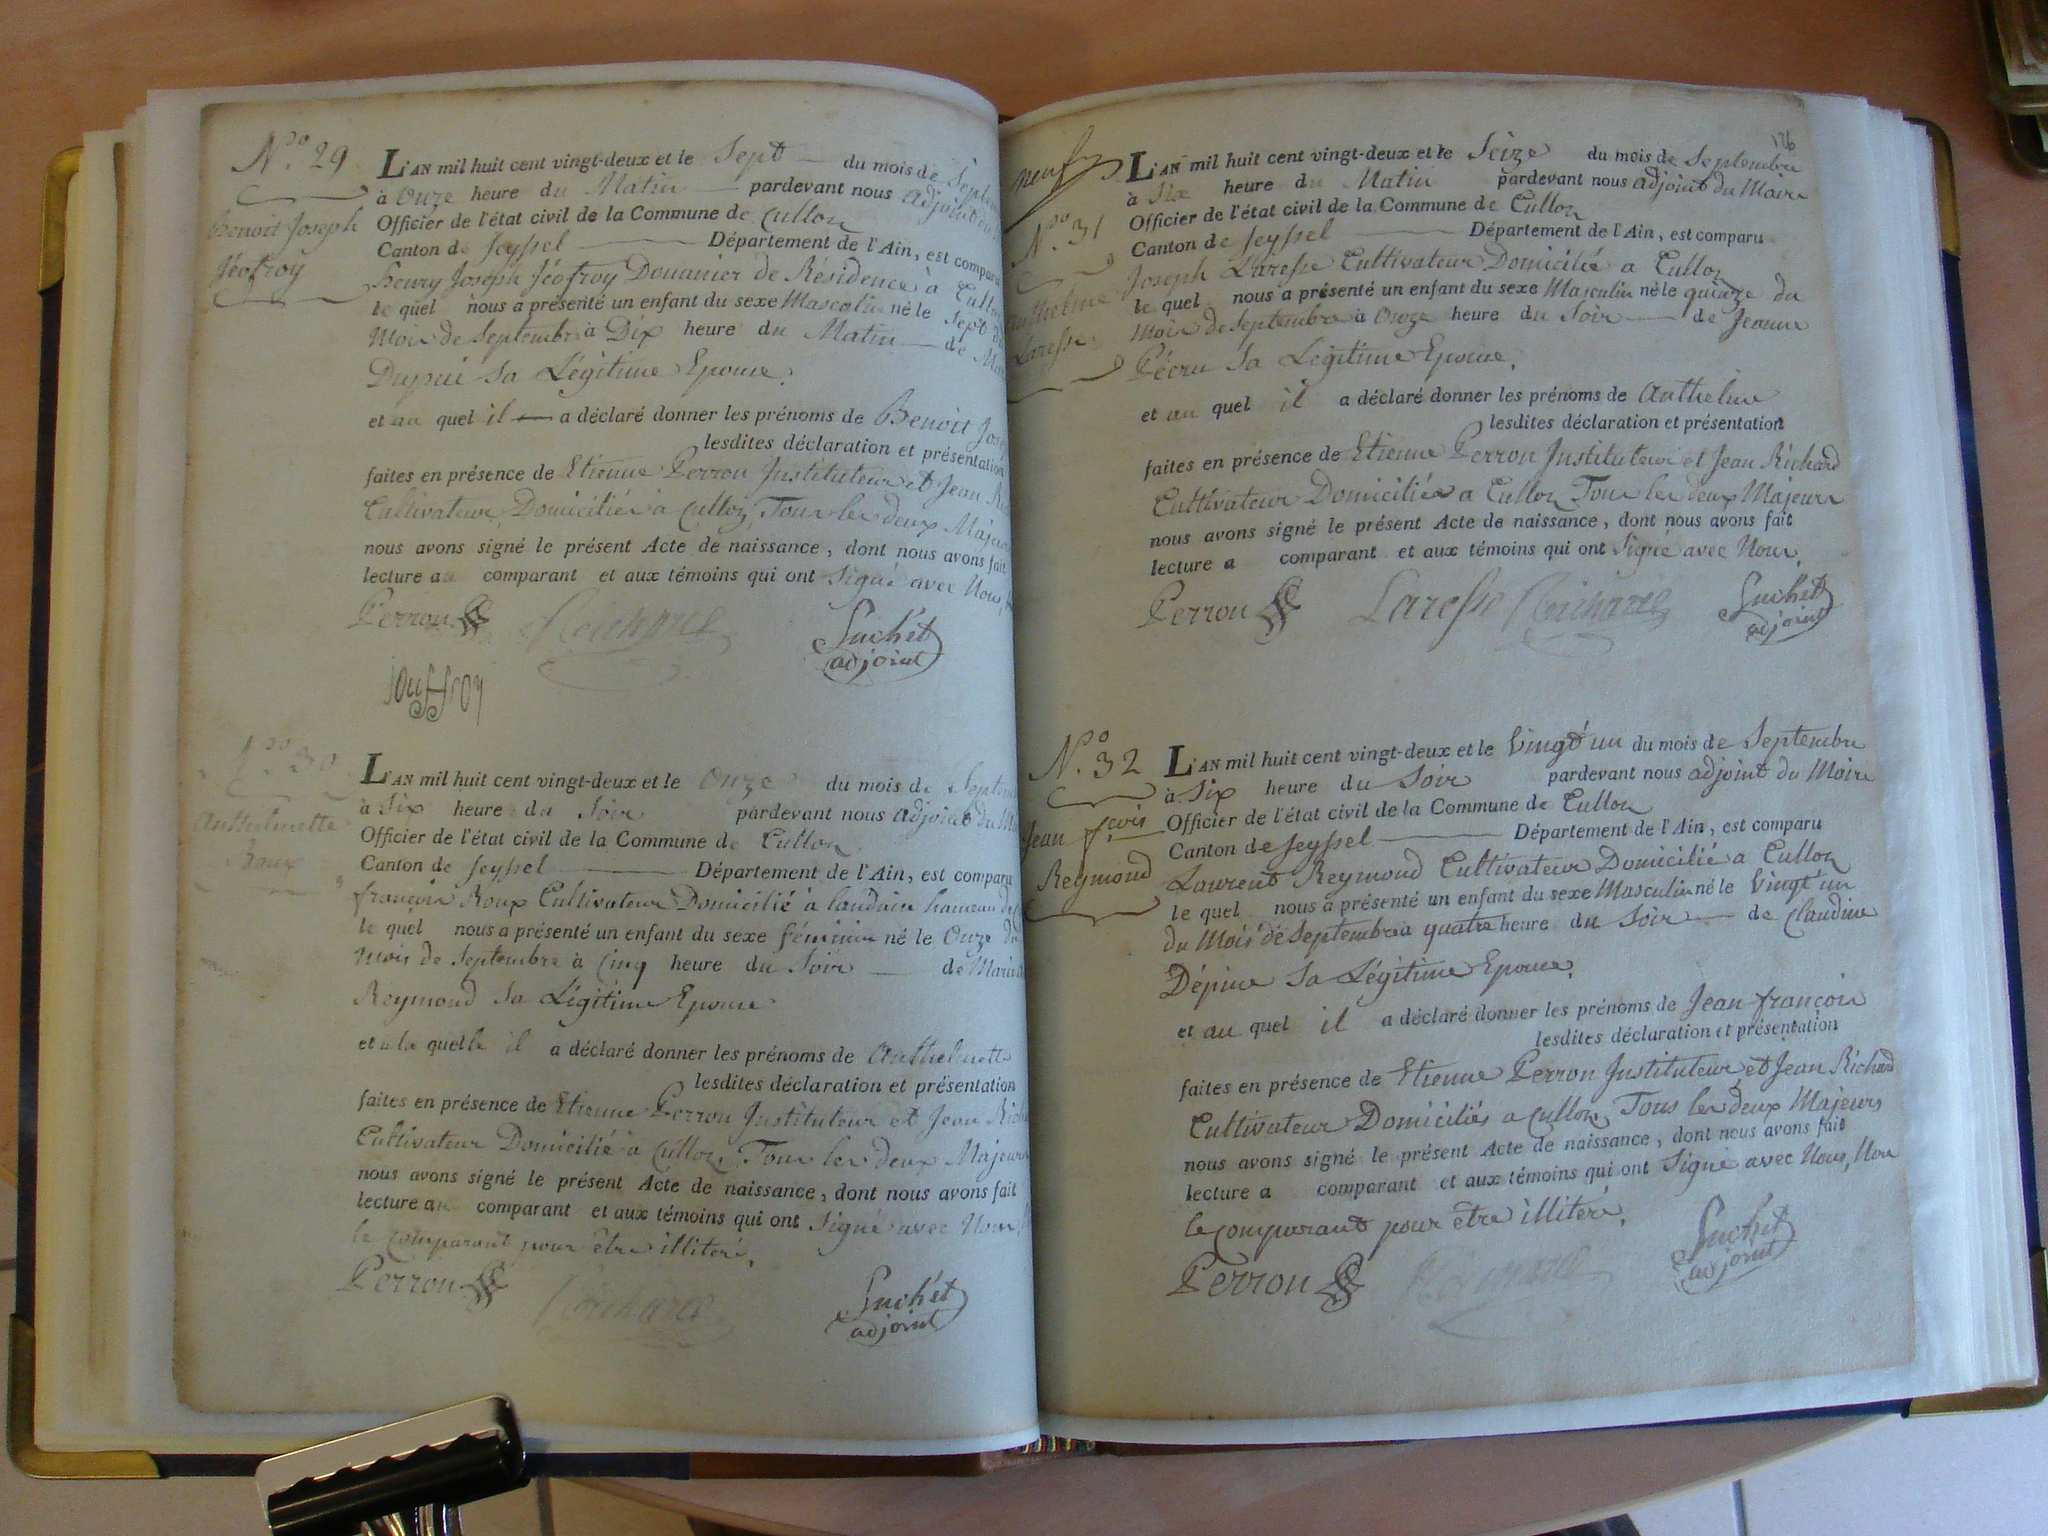 N.º 29
Benoit Joseph
Jéofroy
L'AN mil huit cent vingt-deux et le Sept du mois de Septem
à Onze heure du Matin pardevant nous adjoint du
Officier de l'état civil de la Commune de Culloz
Canton de Seyssel Département de l'Ain, est comparu
henry Joseph Jéofroy Douanier de Résidence à Culloz
le quel nous a présenté un enfant du sexe Masculin né le Sept du
Mois de Septembre à Dix heure du Matin de
Dupui Sa Légitime Epouse.
et au quel il a déclaré donner les prénoms de Benoit Jos
lesdites déclaration et présentation
faites en présence de Etienne Perron Instituteur et Jean Ri
Cultivateur Domiciliés à Culloz, Tous les deux Majeurs
nous avons signé le présent Acte de naissance, dont nous avons fait
lecture au comparant et aux témoins qui ont Signé avec Nous,
Perron Richard Suchet
adjoint
jouffroy
N.º 30
Anthelmette
Roux
L'AN mil huit cent vingt-deux et le Onze du mois de Septem
à Six heure du Soir pardevant nous adjoint du Ma
Officier de l'état civil de la Commune de Culloz
Canton de Seyssel Département de l'Ain, est comparu
françois Roux Cultivateur Domicilié à landaize hameau de
le quel nous a présenté un enfant du sexe féminin né le Onze du
Mois de Septembre à Cinq heure du Soir de Marie
Reymond Sa Légitime Epouse
et a la quelle il a déclaré donner les prénoms de Anthelmette
lesdites déclaration et présentation
faites en présence de Etienne Perron Instituteur et Jean Rich
Cultivateur Domicilié à Culloz, Tous les deux Majeurs
nous avons signé le présent Acte de naissance, dont nous avons fait
lecture au comparant et aux témoins qui ont Signé avec Nous,
le comparant pour être illitéré.
Perron Richard Suchet
adjoint
136
neuf
N.º 31
Anthelme
Laresse
L'AN mil huit cent vingt-deux et le Seize du mois de Septembre
à Six heure du Matin pardevant nous adjoint du Maire
Officier de l'état civil de la Commune de Culloz
Canton de Seyssel Département de l'Ain, est comparu
Joseph Laresse Cultivateur Domicilié a Culloz
le quel nous a présenté un enfant du sexe Masculin né le quinze du
Mois de Septembre à Onze heure du Soir de Jeanne
Pécru Sa Légitime Epouse.
et au quel il a déclaré donner les prénoms de Anthelme
lesdites déclaration et présentation
faites en présence de Etienne Perron Instituteur et Jean Richard
Cultivateur Domiciliés a Culloz Tous les deux Majeurs
nous avons signé le présent Acte de naissance, dont nous avons fait
lecture a comparant et aux témoins qui ont Signé avec Nous.
Perron Laresse Richard Suchet
adjoint
N.º 32
Jean fçois
Reymond
L'AN mil huit cent vingt-deux et le Vingt un du mois de Septembre
à Six heure du Soir pardevant nous adjoint du Maire
Officier de l'état civil de la Commune de Culloz
Canton de Seyssel Département de l'Ain, est comparu
Laurent Reymond Cultivateur Domicilié a Culloz
le quel nous a présenté un enfant du sexe Masculin né le Vingt un
du Mois de Septembre a quatre heure du Soir de Claudine
Dépine Sa Légitime Epouse.
et au quel il a déclaré donner les prénoms de Jean françois
lesdites déclaration et présentation
faites en présence de Etienne Perron Instituteur, et Jean Richard
Cultivateur Domiciliés a Culloz, Tous les deux Majeurs
nous avons signé le présent Acte de naissance, dont nous avons fait
lecture a comparant et aux témoins qui ont Signé avec Nous, Non
le comparant pour être illitéré.
Perron Richard Suchet
adjoint